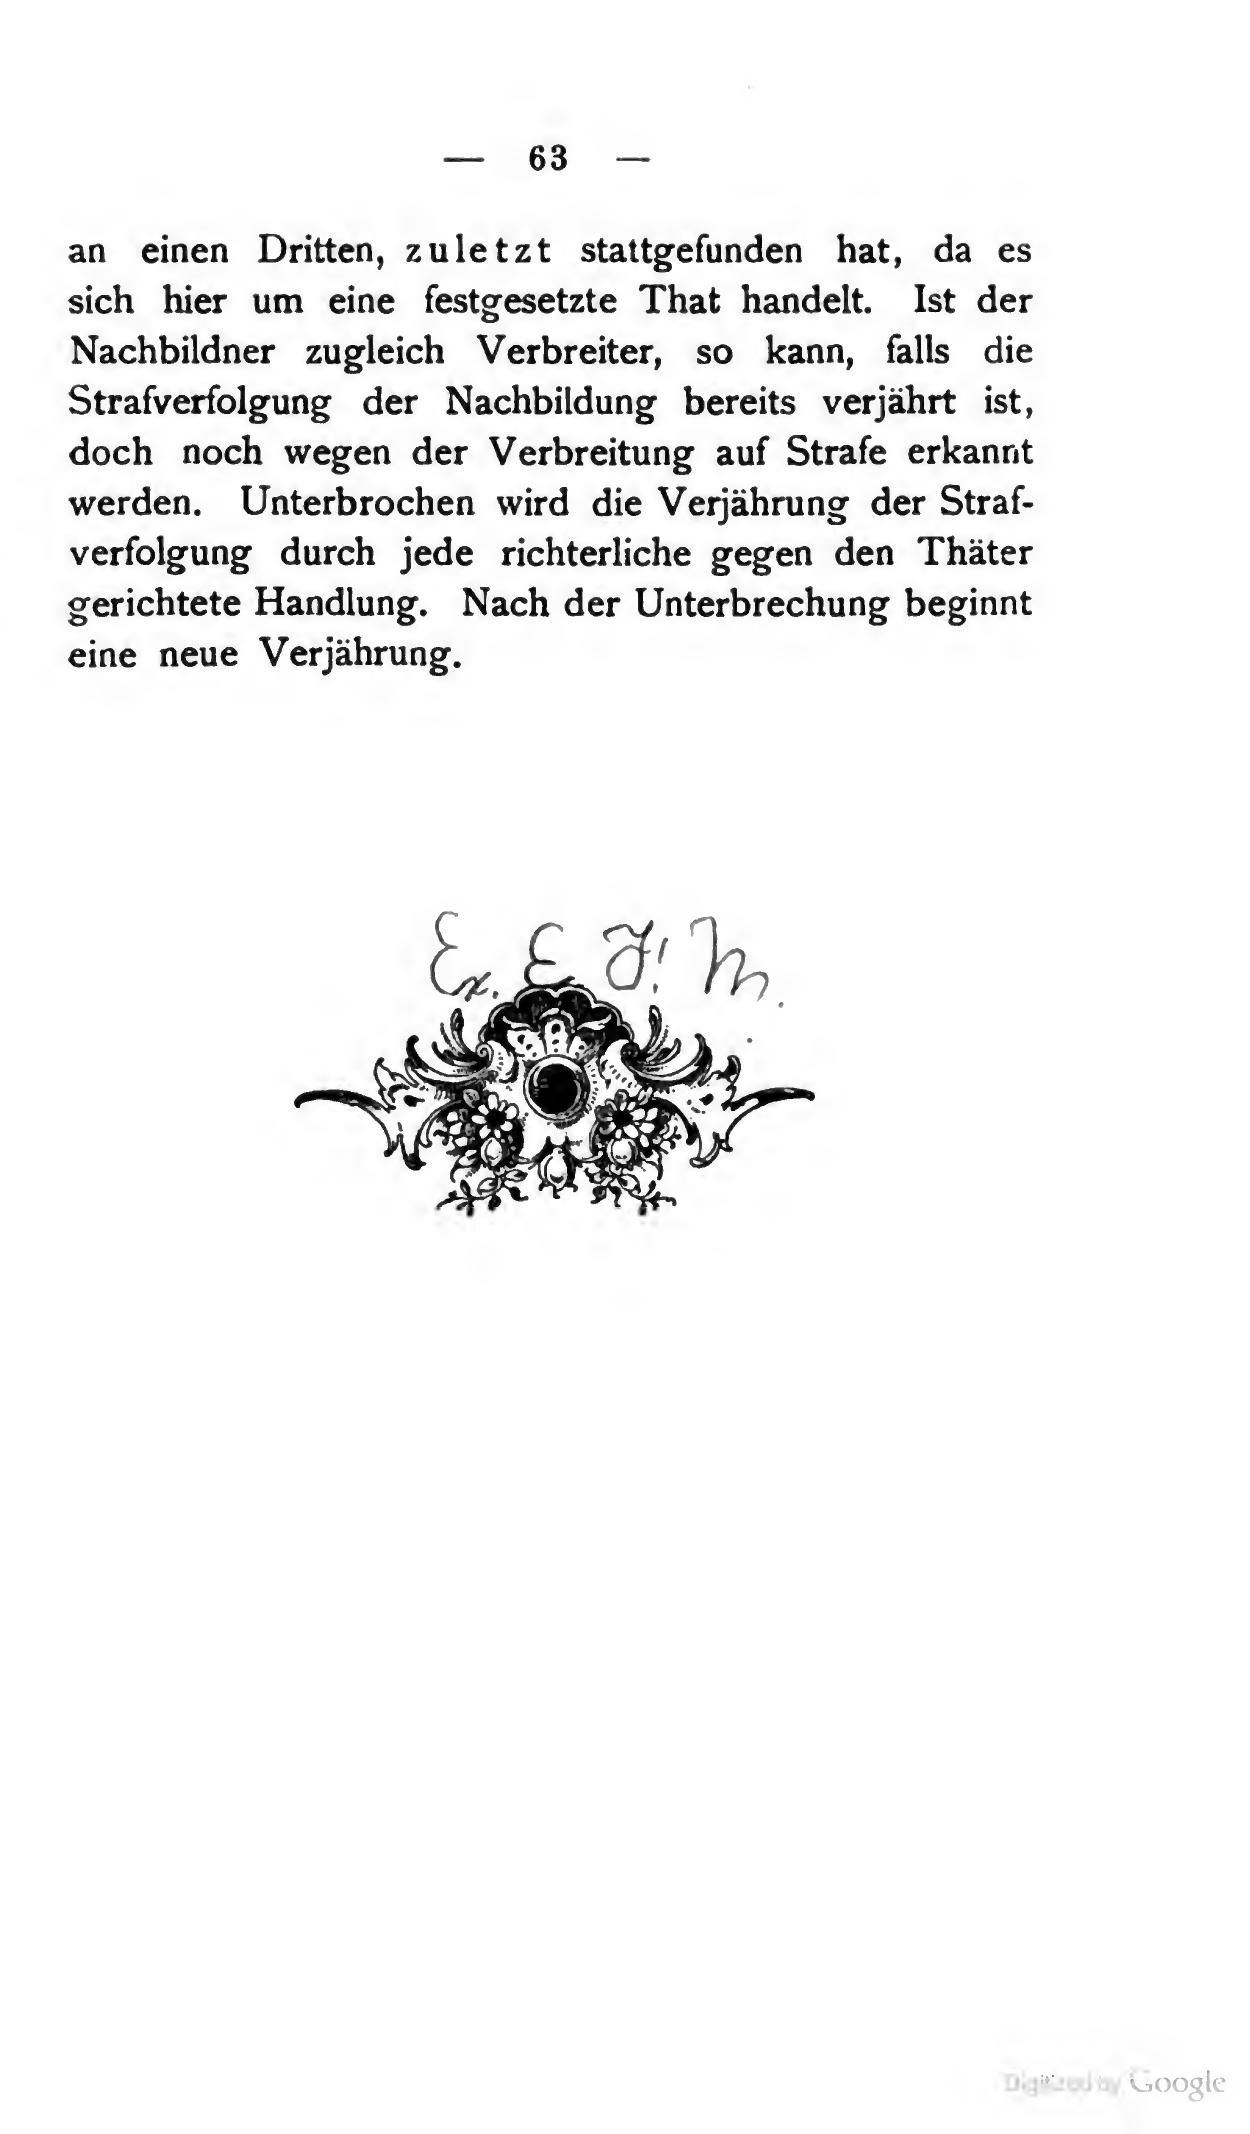 — 63 —
an einen Dritten, zuletzt stattgefunden hat, da es
sich hier um eine festgesetzte That handelt. Ist der
Nachbildner zugleich Verbreiter, so kann, falls die
Strafverfolgung der Nachbildung bereits verjährt ist,
doch noch wegen der Verbreitung auf Strafe erkannt
werden. Unterbrochen wird die Verjährung der Straf-
verfolgung durch jede richterliche gegen den Thäter
gerichtete Handlung. Nach der Unterbrechung beginnt
eine neue Verjährung.
Ex. E
Digitized by Google